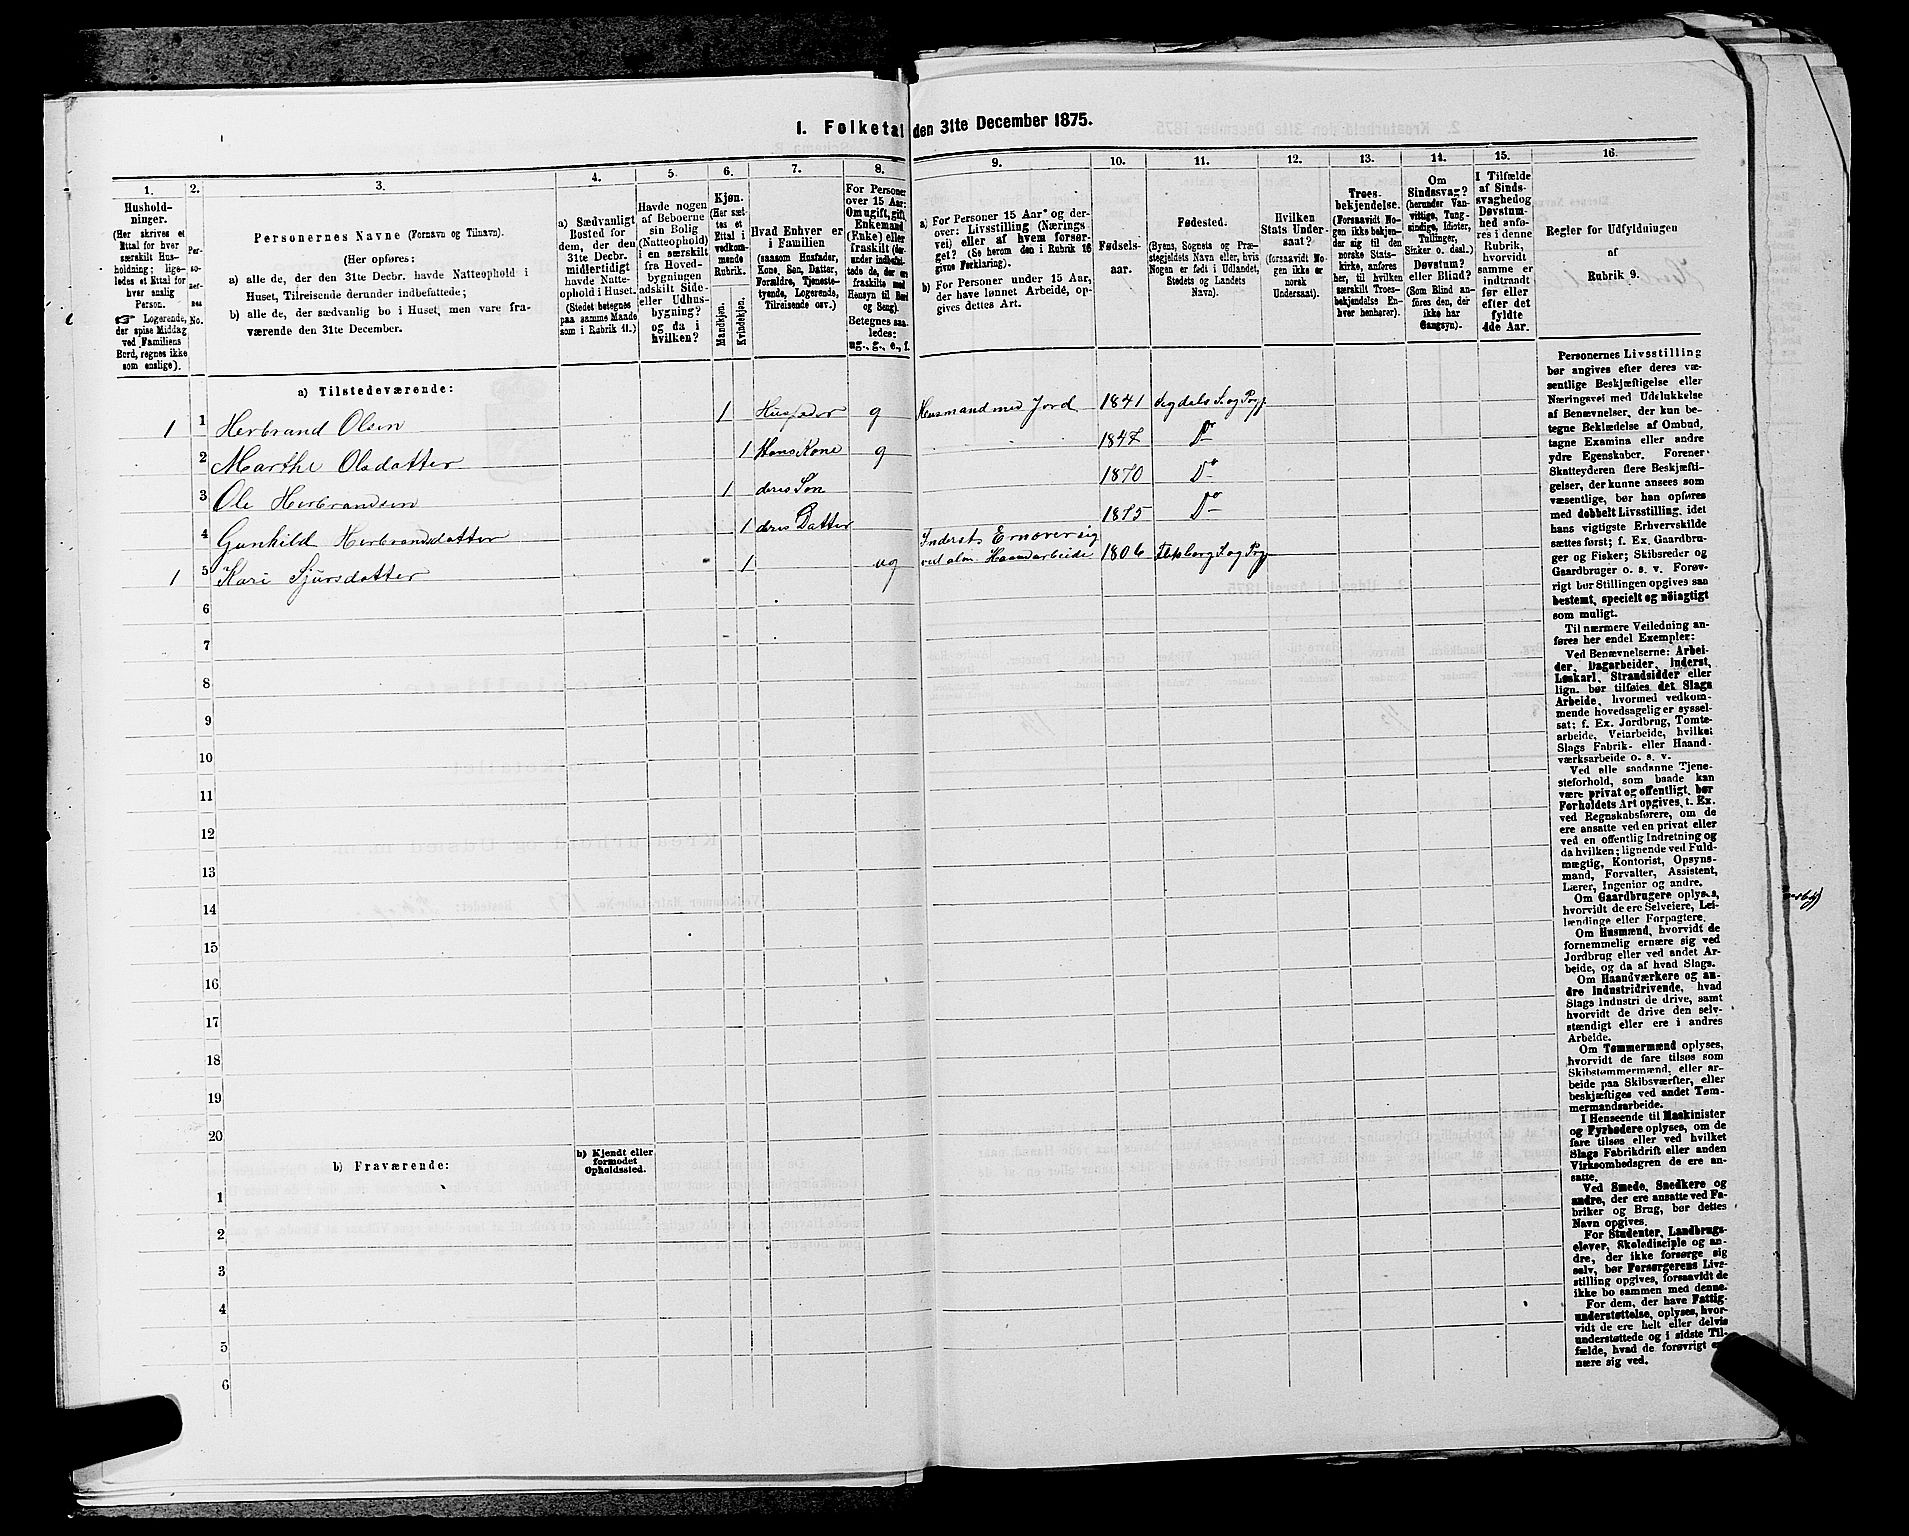 1. Folketal den 31te December 1875.
1. 2. 3. 4. 5. 6. 7. 8. 9. 10. 11. 12. 13. 14. 15. 16.
Hushold-
ninger.
(Her skrives et
Ettal for hver
særskilt Hus-
holdning; lige-
ledes et Ettal for
hver enslig
Person.
☞ Logerende,
der spise Middag
ved Familiens
Bord, regnes ikke
som enslige).
Per-
so-
ner-
nes
No.
Personernes Navne (Fornavn og Tilnavn).
(Her opføres:
a) alle de, der den 31te Decbr. havde Natteophold i
Huset, Tilreisende derunder indbefattede;
b) alle de, der sædvanlig bo i Huset, men vare fra-
værende den 31te December.
a) Sædvanligt
Bosted for
dem, der den
31te Decbr.
midlertidigt
havde Natte-
ophold i Huset.
(Stedet betegnes
paa samme Maade
som i Rubrik 11.)
Havde nogen
af Beboerne
sin Bolig
(Natteophold)
i en særskilt
fra Hoved-
bygningen
adskilt Side-
eller Udhus-
bygning?
og da i
hvilken?
Kjøn.
(Her sæt-
tes et
Ettal i
vedkom-
mende
Rubrik.
Mandkjøn.
Kvindekjøn.
Hvad Enhver er
i Familien
(saasom Husfader,
Kone, Søn, Datter,
Forældre, Tjeneste-
tyende, Logerende,
Tilreisende osv.)
For Personer
over 15 Aar:
Om ugift, gift,
Enkemand
(Enke) eller
fraskilt (der-
under indbefat-
tede de, der ere
fraskilte med
Hensyn til Bord
og Seng).
Betegnes saa-
ledes:
ug., g., e., f.
a) For Personer 15 Aar og der-
over: Livsstilling (Nærings-
vei) eller af hvem forsør-
get? (Se herom den i Rubrik 16
givne Forklaring).
b) For Personer under 15 Aar,
der have lønnet Arbeide, op-
gives dettes Art.
Fødsels-
aar.
Fødested.
(Byens, Sognets og Præ-
stegjeldets Navn eller, hvis
Nogen er født i Udlandet,
Stedets og Landets
Navn).
Hvilken
Stats Under-
saat?
(forsaavidt No-
gen ikke er
norsk
Undersaat).
Troes-
bekjendelse.
(Forsaavidt No-
gen ikke bekjen-
der sig til den
norske Stats-
kirke, anføres
her, til hvilken
særskilt Troes-
bekjendelse En-
hver henhører).
Om
Sindssvag?
(herunder Van-
vittige, Tung-
sindige, Idioter,
Tullinger,
Sinker o. desl.)
Døvstum?
eller Blind?
(Som Blind an-
føres den, der
ikke har
Gangsyn).
I Tilfælde
af Sinds-
svaghed og
Døvstum-
hed anfø-
res i denne
Rubrik,
hvorvidt
samme er
indtraadt
før eller
efter det
fyldte
4de Aar.
Regler for Udfyldningen
af
Rubrik 9.
a) Tilstedeværende:
1 1 Herbrand Olsen 1 Husfader g Husmand med Jord 1841 Sigdals S. og Prgj
2 Marthe Olsdatter 1 Hans Kone g 1847 Do
3 Ole Herbrandsen 1 deres Søn 1870 Do
4 Gunhild Herbrandsdatter 1 deres Datter 1875 Do
1 5 Kari Sjursdatter 1 ug Inderst Ernærer sig
ved alm. Haandarbeide 1806 S. og Prgj
6
7
8
9
10
11
12
13
14
15
16
17
18
19
20
b) Fraværende:
b) Kjendt eller
formodet
Opholdssted.
1
2
3
4
5
6
Personernes Livsstilling
bør angives efter deres væ-
sentlige Beskjæftigelse eller
Næringsvei med Udelukkelse
af Benævnelser, der kun be-
tegne Beklædelse af Ombud,
tagne Examina eller andre
ydre Egenskaber. Forener
Skatteyderen flere Beskjæfti-
gelser, der kunne ansees som
væsentlige, bør han opføres
med dobbelt Livsstilling, idet
hans vigtigste Erhvervskilde
sættes først; f. Ex. Gaardbru-
ger og Fisker; Skibsreder og
Gaardbruger o. s. v. Forøv-
rigt bør Stillingen opgives saa
bestemt, specielt og nøiagtigt
som muligt.
Til nærmere Veiledning an-
føres her endel Exempler:
Ved Benævnelserne: Arbei-
der, Dagarbeider, Inderst,
Løskarl, Strandsidder eller
lign. bør tilføies det Slags
Arbeide, hvormed vedkom-
mende hovedsagelig er syssel-
sat; f. Ex. Jordbrug, Tomte-
arbeide, Veiarbeide, hvilket
Slags Fabrik- eller Haand-
værksarbeide o. s. v.
Ved alle saadanne Tjene-
steforhold, som baade kan
være privat og offentligt, bør
Forholdets Art opgives, t. Ex.
ved Regnskabsførere, om de
ere ansatte ved en privat eller
ved en offentlig Indretning og
da hvilken; lignende ved Fuld-
mægtig, Kontorist, Opsyns-
mand, Forvalter, Assistent,
Lærer, Ingeniør og andre.
Om Gaardbrugere oplyses,
hvorvidt de ere Selveiere, Lei-
lændinge eller Forpagtere.
Om Husmænd, hvorvidt de
fornemmelig ernære sig ved
Jordbrug eller ved andet Ar-
beide, og da af hvad Slags.
Om Haandværkere og an-
dre Industridrivende, hvad
Slags Industri de drive, samt
hvorvidt de drive den selv-
stændigt eller ere i andres
Arbeide.
Om Tømmermænd oplyses,
hvorvidt de fare tilsøs som
Skibstømmermænd, eller ar-
beide paa Skibsværfter, eller
beskjæftiges ved andet Tøm-
mermandsarbeide.
I Henseende til Maskinister
og Fyrbødere oplyses, om de
fare tilsøs eller ved hvilket
Slags Fabrikdrift eller anden
Virksomhedsgren de ere an-
satte.
Ved Smede, Snedkere og
andre, der ere ansatte ved Fa-
briker og Brug, bør dettes
Navn opgives.
For Studenter, Landbrugs-
elever, Skoledisciple og an-
dre, der ikke forsørge sig
selv, bør Forsørgerens Livs-
stilling opgives, forsaavidt de
ikke bo sammen med denne.
For dem, der have Fattig-
understøttelse, oplyses, hvor-
vidt de ere helt eller delvis
understøttede og i sidste Til-
fælde, hvad de forøvrigt er-
nære sig ved.